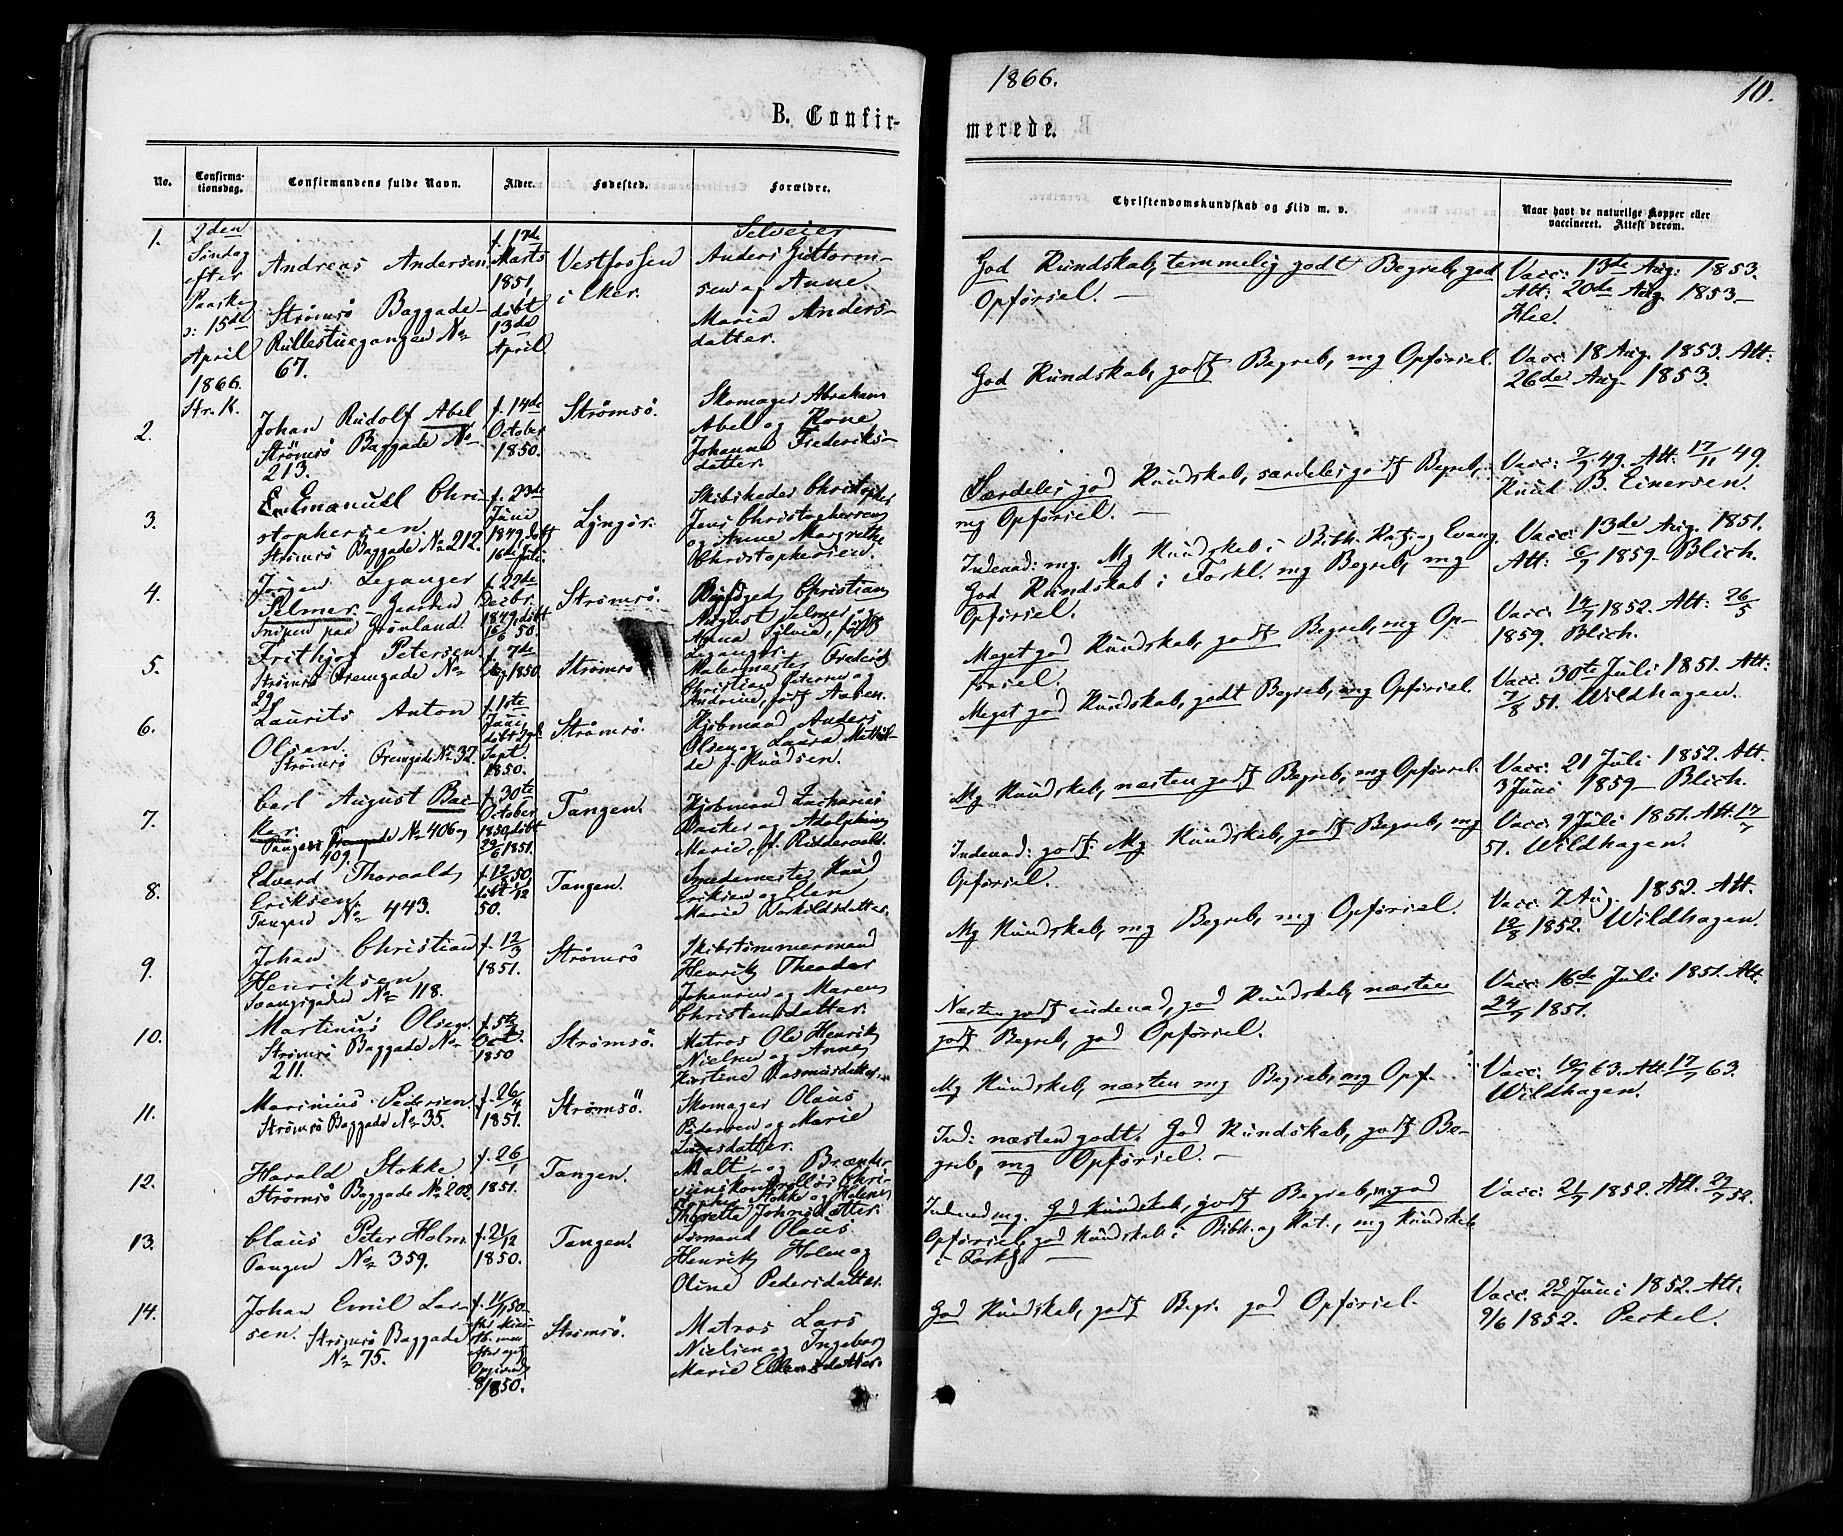 1866.
10.
B. Confir-
merede.
No.
Confirma-
tionsdag.
Confirmandens fulde Navn.
Alder.
Fødested.
Forældre.
Christendomskundskab og Flid m. v.
Naar havt de naturlige Kopper eller
vaccineret. Attest derom.
1.
2den
Søndag
efter
Paaske
ɔ: 15de
April
1866.
Str. K.
Andreas Andersen
Strømsø Baggade
Rullestuegangen No
67.
f. 17de
Marts
1851,
døbt
13de
April
Vestfossen
i Eker.
Selveier
Anders Guttorm-
sen og Anne
Maria Anders-
datter.
God Kundskab, temmelig godt Begreb, god
Opførsel. —
Vacc: 13de Aug: 1853.
Att: 20de Aug. 1853 —
2.
Johan Rudolf Abel
Strømsø Baggade No
213.
f. 14de
October
1850.
Strømsø.
Skomager Abraham
Abel og Kone
Johanne Frederiks-
datter.
God Kundskab, godt Begreb, mg Opførsel.
Vacc: 18 Aug. 1853. Att:
26de Aug. 1853.
3.
Emanuell Chri-
stophersen.
Strømsø Baggade No 212.
f. 23de
Juni
1849, døbt
16de Juli.
Lyngør.
Skibsreder Christopher
Jens Christophersen
og Anne Margrethe
Christophersen.
Særdeles god Kundskab, særdeles godt Begreb,
mg Opførsel. —
Vacc: 2/9 49. Att: 17/11 49.
Knud B. Einersen.
4.
Jürgen Leganger
Selmer - Gaarden
Snipen paa Grønland.
f. 22de
Decbr.
1849, døbt
16/6 50.
Strømsø.
Christian
August Selmer og
Anna Sylvia, født
Leganger.
Indenad: mg. Mg Kundskab i Bibh. Kat. og Evang.
God Kundskab i Forkl. mg Begreb, mg
Opførsel.
Vacc: 13de Aug. 1851.
Att: 6/7 1859. Blich.
5.
Frithjof Petersen
Strømsø Øvregade No
29.
f. 7de
1850.
Strømsø
Malermester Frederik
Christian Petersen og
Andrine, født Aaben.
Meget god Kundskab, godt Begreb, mg Op-
førsel.
Vacc: 14/7 1852. Att: 26/5
1859. Blich.
6.
Laurits Anton
Olsen.
Strømsø Øvregade No 32.
f. 1ste
Juni,
døbt 29de
Sept.
1850.
Strømsø.
Kjøbmand Anders
Olsen og Laura Mathil-
de f. Knudsen.
Meget god Kundskab, godt Begreb, mg Opførsel.
Vacc: 30te Juli 1851. Att:
7/8 51. Wildhagen.
7.
Carl August Bac-
ker.
Tangen No 406 og
409.
f. 30te
October
1850, døbt
29/6 1851.
Tangen.
Kjøbmand Zacharias
Backer og Adolphine
Marie, f. Riddervold.
Mg Kundskab, næsten godt Begreb, mg Opførsel.
Vacc: 21 Juli 1852. Att.
3 Juni 1859 — Blich.
8.
Edvard Thorvald
Eriksen.
Tangen No 443.
50.
Tangen.
Smedemester Knud
Eriksen og Elen
Marie Torkildsdatter.
Indenad: godt. Mg Kundskab, godt Begreb, mg
Opførsel.
Vacc: 9 Juli 1851. Att. 17/7
51. Wildhagen.
9.
Johan Christian
Henriksen
Svangsgade No 118.
f. 12/3
1851.
Strømsø
Skibstømmermand
Henrik Theodor
Johansen og Maren
Christensdatter.
Mg Kundskab, mg Begreb, mg Opførsel.
Vacc: 7 Aug. 1852. Att.
18/8 1852. Wildhagen.
10.
Martinius Olsen.
Strømsø Baggade No
211.
f. 5te
Oct.
1850
Strømsø.
Matros Ole Henrik
Nielsen og Anne
Kirstine Rasmusdatter.
Næsten godt indenad, god Kundskab, næsten
godt Begreb, god Opførsel.
Vacc: 16de Juli 1851. Att.
24/7 1851.
11.
Marinius Pedersen.
Strømsø Baggade No 35.
f. 26/4
1851.
Strømsø.
Skomager Olaus
Pedersen og Marie
Larsdatter.
Mg Kundskab, næsten mg Begreb, mg Opf.
Vacc: 10/7 63. Att: 17/7 63.
Wildhagen.
12.
Harald Stokke
Strømsø Baggade No 202.
f. 26/1
1851.
Tangen.
Malt- og Brænde-
viinskontrollør Chri-
stopher Stokke og Helene
Thorette Johnsdatter.
Ind: næsten godt. God Kundskab, godt Be-
greb, mg Opførsel. —
13.
Claus Peter Holm
Tangen No 359.
f. 21/12
1850.
Tangen.
Sømand Olaus
Henrik Holm og
Oline Pedersdatter.
Indenad mg. God Kundskab, godt Begreb, mg god
Opførsel, god Kundskab i Bibh. og Kat., mg Kundskab
i Forkl. —
Vacc: 21/7 1852. Att. 29/7 52.
14.
Johan Emil Lar-
sen.
Strømsø Baggade
No 75.
8/1850.
Strømsø.
Matros Lars
Nielsen og Ingeborg
Marie Ellensdatter.
God Kundskab, godt Begr. god Opførsel.
Vacc: 29 Juni 1852. Att.
9/6 1852. Peckel.